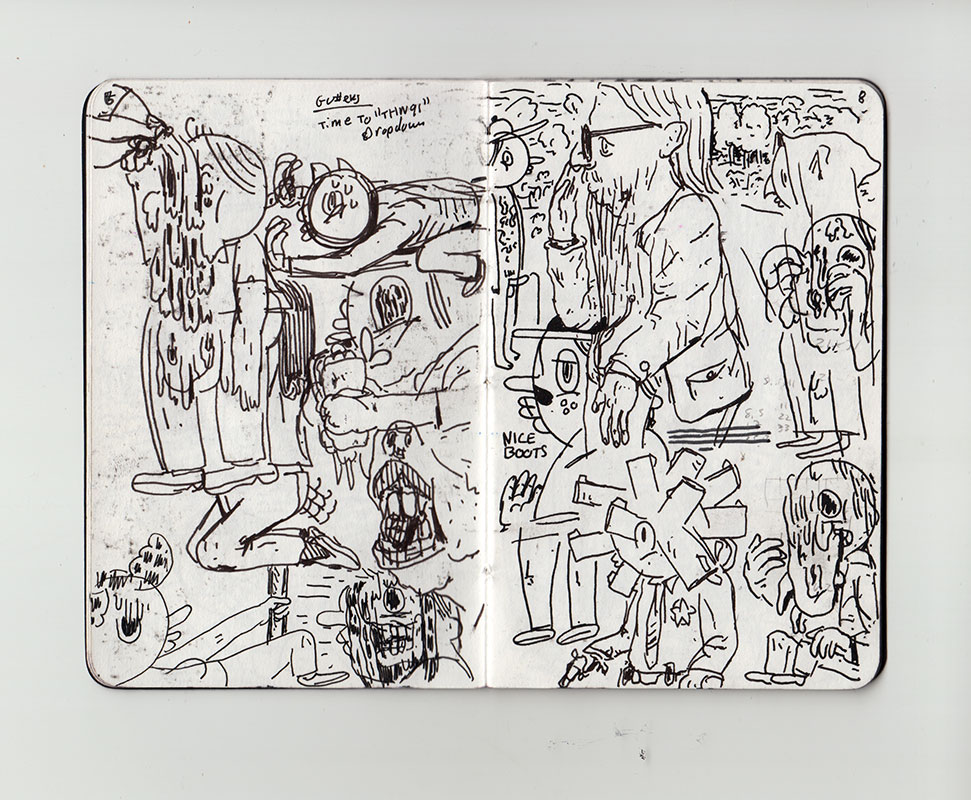 Gutters
Time To "THNG!"
Dropdown
8
NICE
BOOTS